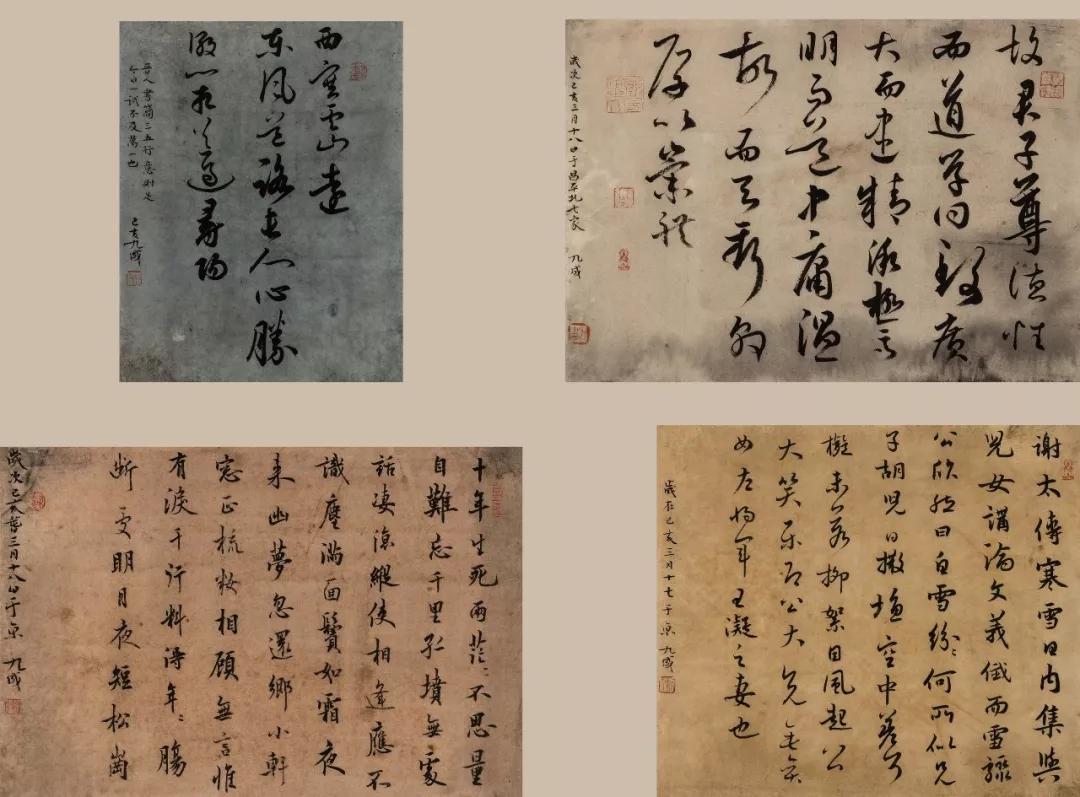 西塞雲山遠
東風道路長人心勝
潮水相送過潯陽
晉人書簡三五行意則足
今日一試不及萬一也
己亥九成
故君子尊德性
而道學問致廣
大而盡精微極高
明而道中庸溫
故而知新敦
厚以崇禮
歲次己亥三月十八日于昌平北七家 九成
十年生死兩茫々不思量
自難忘千里孤墳無處
話淒涼縱使相逢應不
識塵滿面鬢如霜夜
來幽夢忽還鄉小軒
窓正梳妝相顧無言惟
有淚千行料得年々腸
斷處明月夜短松崗
歲次己亥暮三月十八日于京 九成
謝太傅寒雪日內集與
兒女講論文義俄而雪驟
公欣然曰白雪紛々何所似兄
子胡兒曰撒鹽空中差可
擬未若柳絮因風起公
大笑樂即公大兄無奕
女左將軍王凝之妻也
歲在己亥三月十七于京 九成